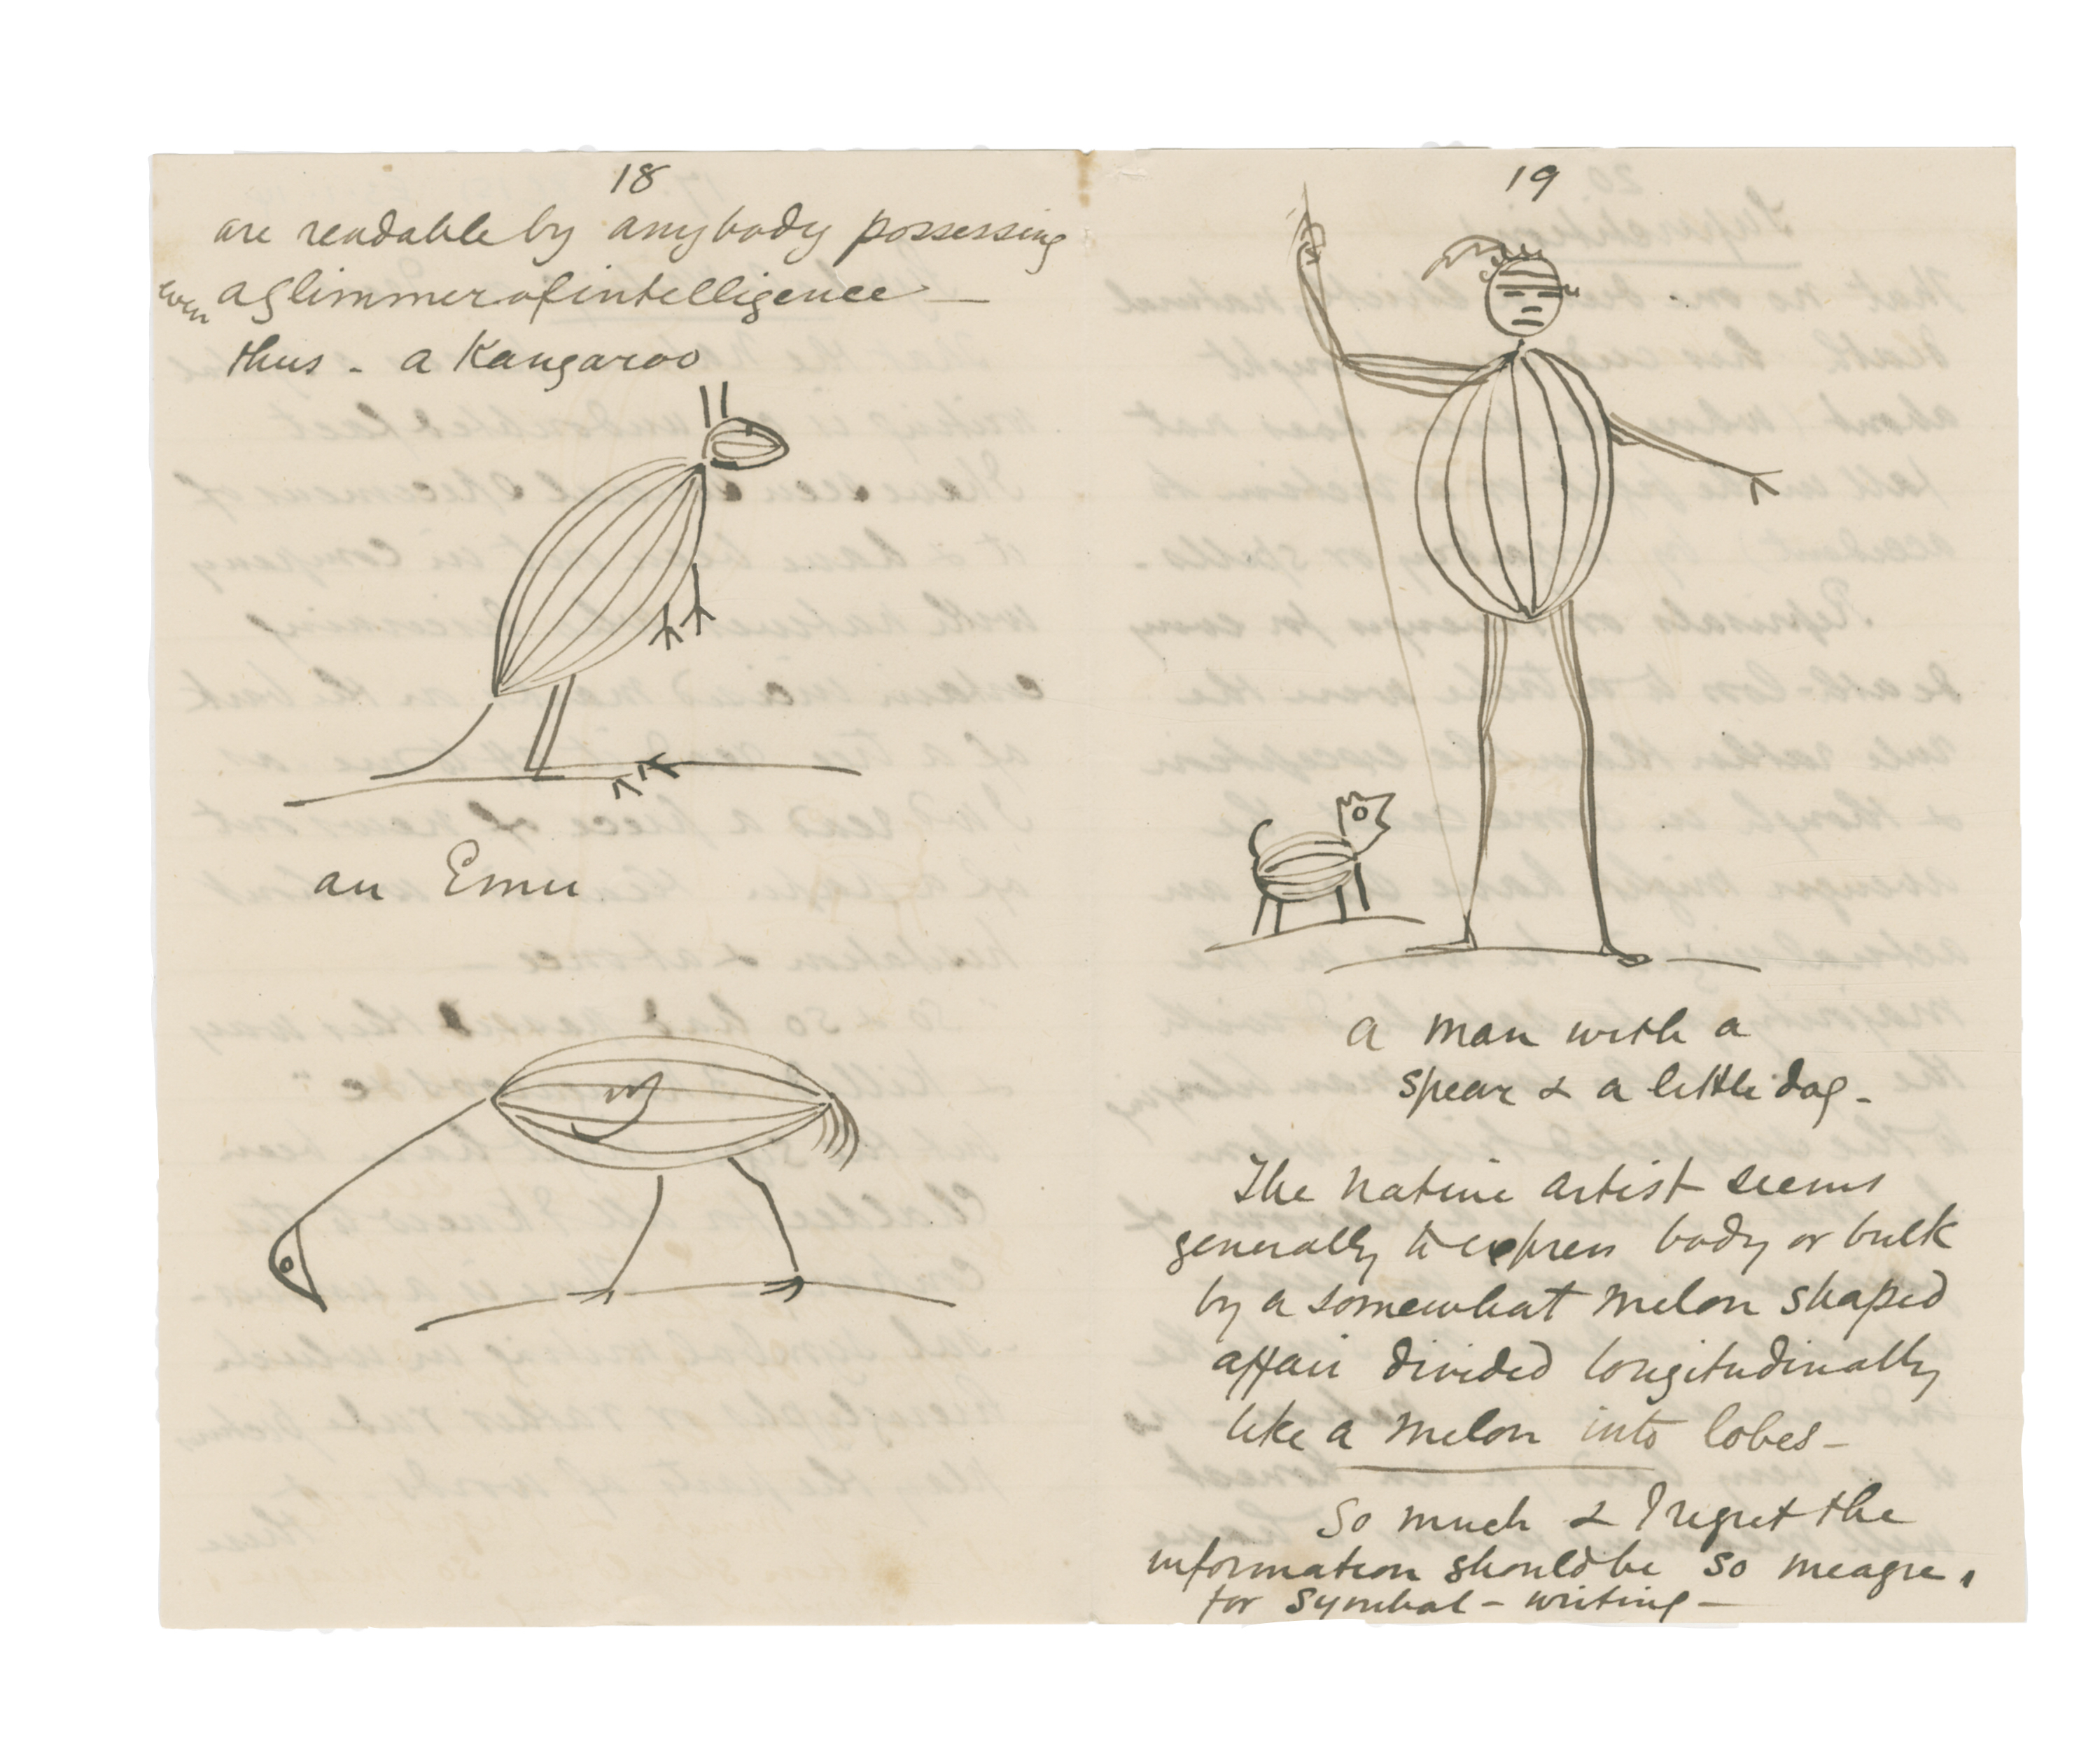 18
are readable by anybody possessing
even a glimmer of intelligence —
thus - a Kangaroo
an Emu
19
a man with a
spear & a little dog -
The native artist seems
generally to express body or bulk
by a somewhat melon shaped
affair divided longitudinally
like a melon into lobes -
So much & I regret the
information should be so meagre,
for symbol - writing -